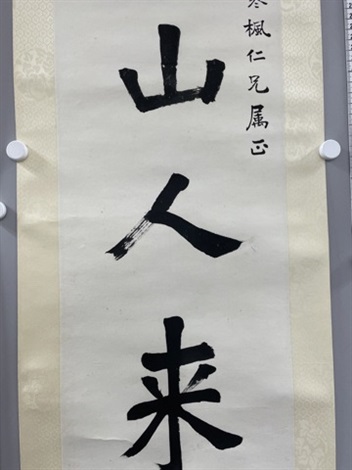 枫仁兄属正
山人来